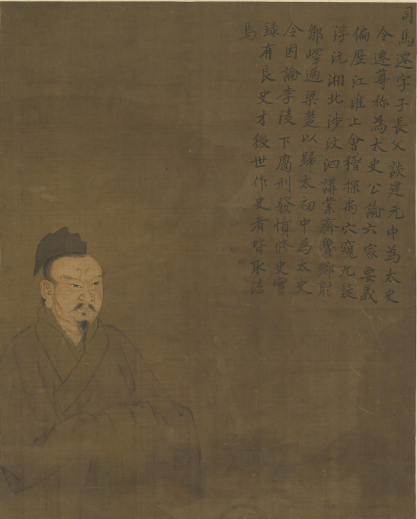 司馬遷字子長父談建元中為太史
令遷尊称為太史公論六家要義
徧歷江淮上會稽探禹穴窺九疑
浮沅湘北涉汶泗講業齊魯鄉射
鄒嶧過梁楚以歸太初中為太史
令因論李陵下腐刑發憤修史實
録有良史才後世作史者皆取法
焉